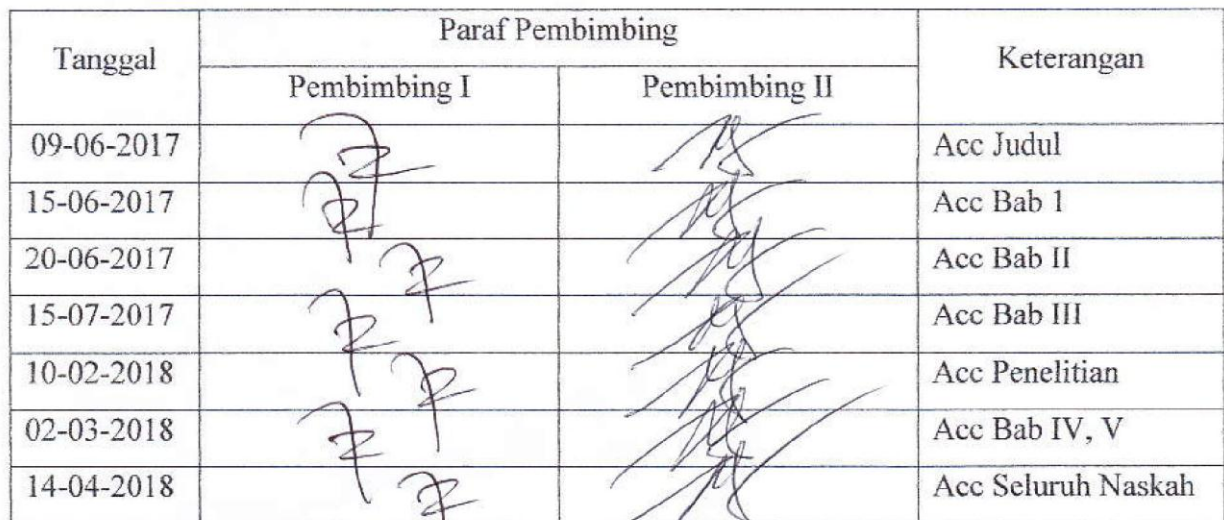 Tanggal Paraf Pembimbing Keterangan
Pembimbing I Pembimbing II
09-06-2017 Acc Judul
15-06-2017 Acc Bab 1
20-06-2017 Acc Bab II
15-07-2017 Acc Bab III
10-02-2018 Acc Penelitian
02-03-2018 Acc Bab IV, V
14-04-2018 Acc Seluruh Naskah